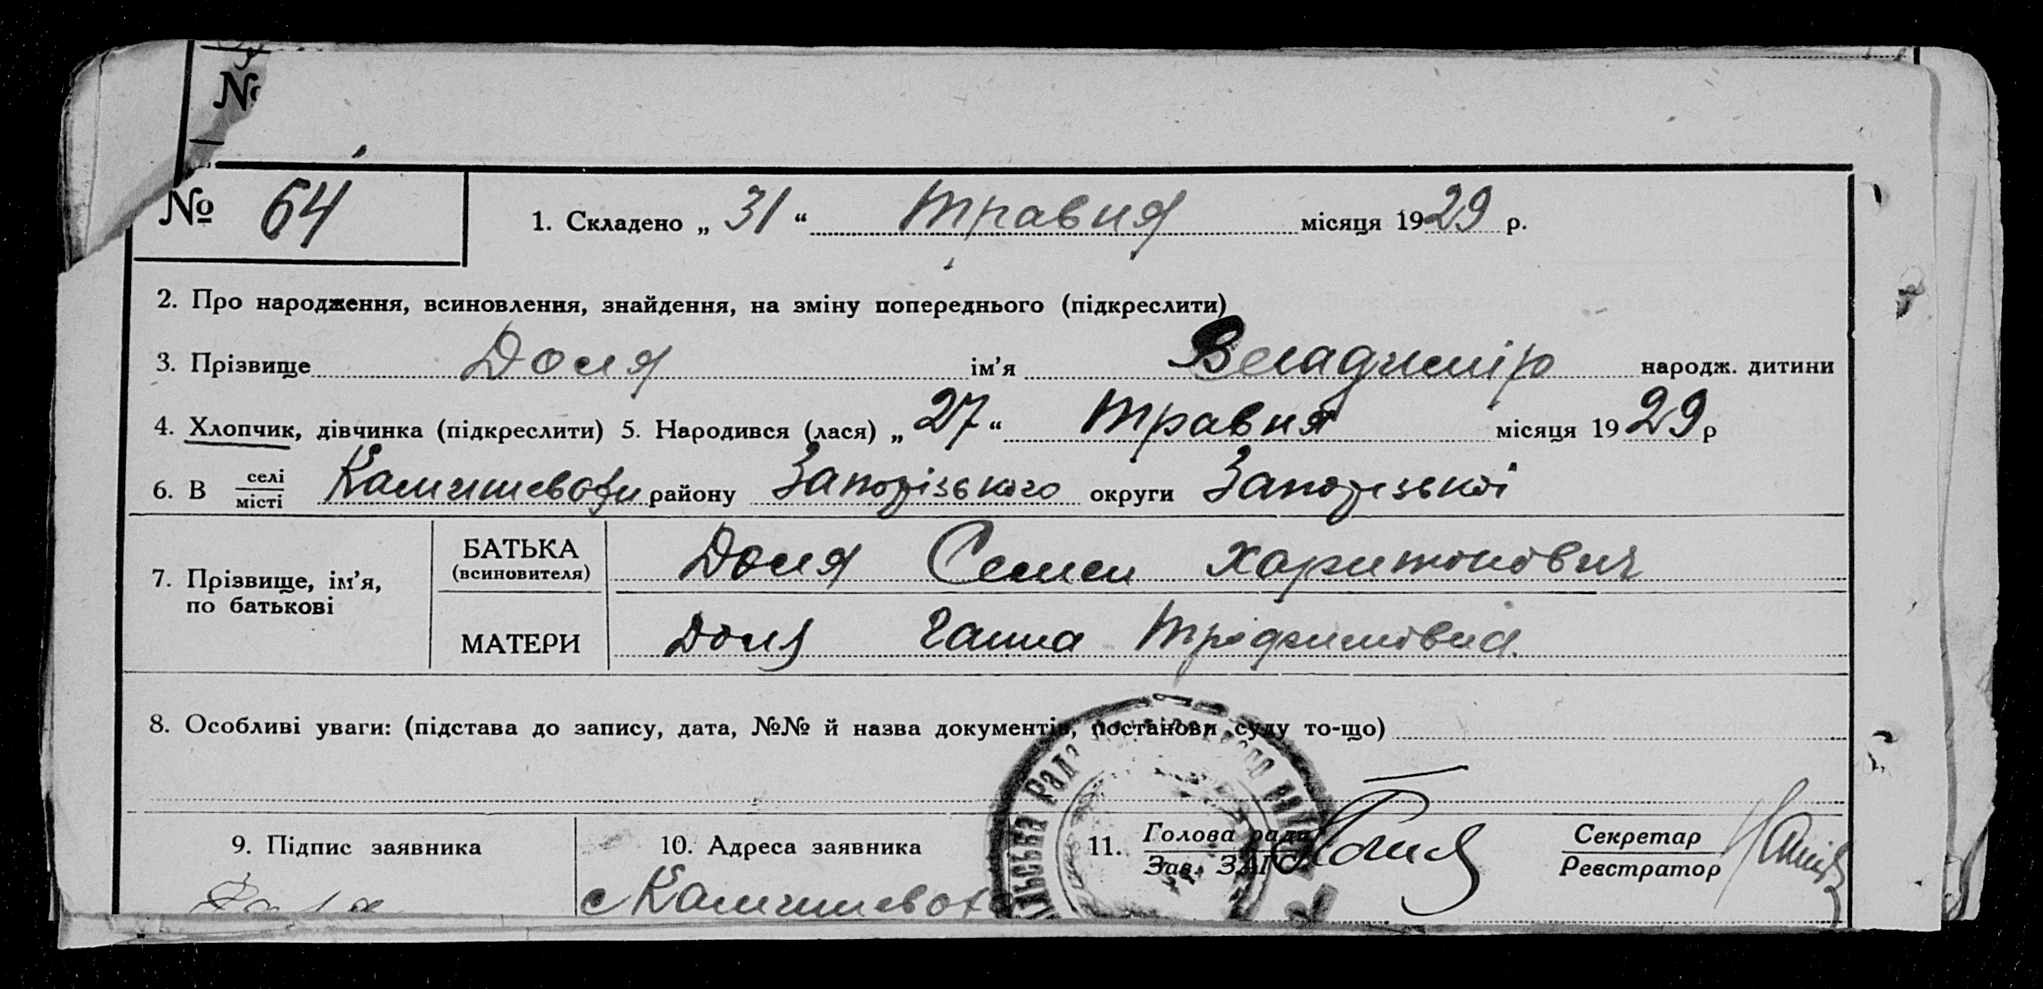 №
№ 64 1. Складено „ 31 “ травня місяця 1929 р.
2. Про народження, всиновлення, знайдення, на зміну попереднього (підкреслити)
3. Прізвище Доля ім’я Владимір народж. дитини
4. Хлопчик, дівчинка (підкреслити) 5. Народився (лася) „ 27 “ травня місяця 1929 р
6. В селі/місті Камишевахи району Запорізького округи Запорізької
7. Прізвище, ім’я, по батькові
БАТЬКА (всиновителя) Доля Семен Харитонович
МАТЕРИ Доля Ганна Трофимовна
8. Особливі уваги: (підстава до запису, дата, №№ й назва документів, постанови суду то-що)
9. Підпис заявника 10. Адреса заявника 11. Голова ради/Зав. ЗАГС Секретар/Реєстратор
с Камишеваха
Рада